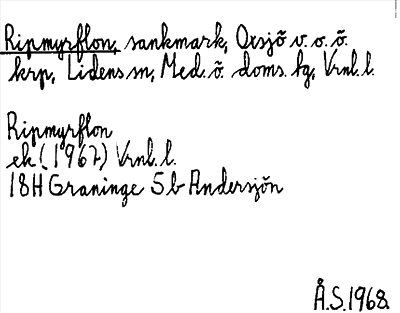 Ripmyrflon, sankmark, Oxsjö v. o. ö.
krp, Lidens sn, Med. ö. doms. tg, Vrnl. l.
Ripmyrflon
ek (1967) Vrnl. l.
18H Graninge 5b Andersjön
Å.S. 1968.